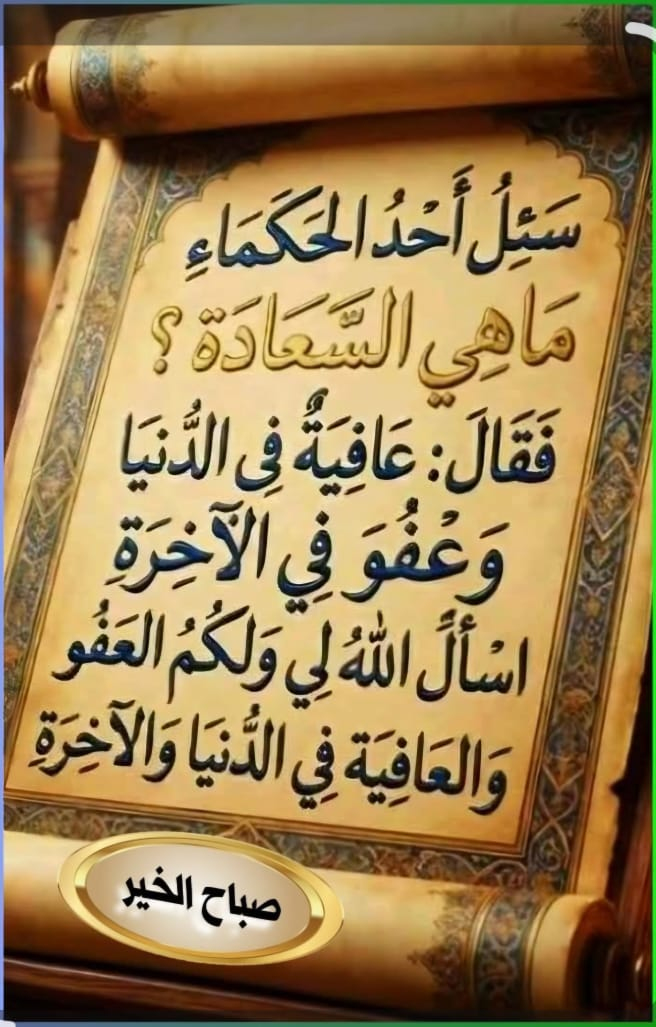 سَئِلُ أَحْدُ الحَكَمَاءِ
مَاهِي السَّعَادَة ؟
فَقَالَ: عَافِيَةٌ فِي الدُّنيَا
وَعْفُوَ فِي الآخِرَةِ
اسْألً اللهُ لِي وَلَكُمُ العَفُو
وَالعَافِيَة فِي الدُّنيَا وَالآخِرَةِ
صباح الخير